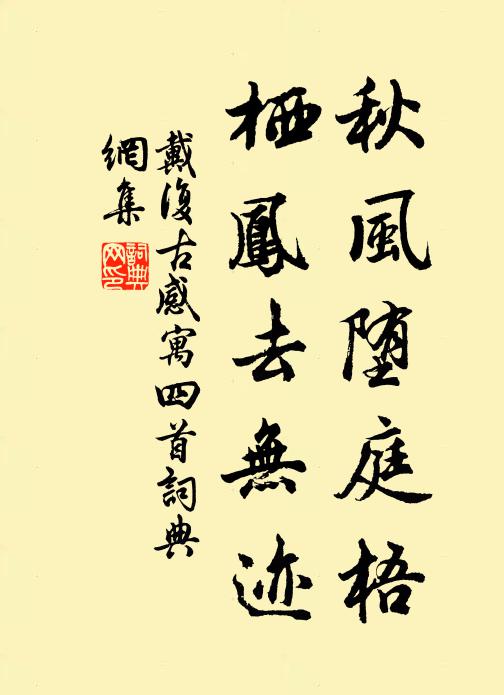 秋風堕庭梧
栖鳳去無迹
戴復古感寓四首詞典
網集
詞典
网印